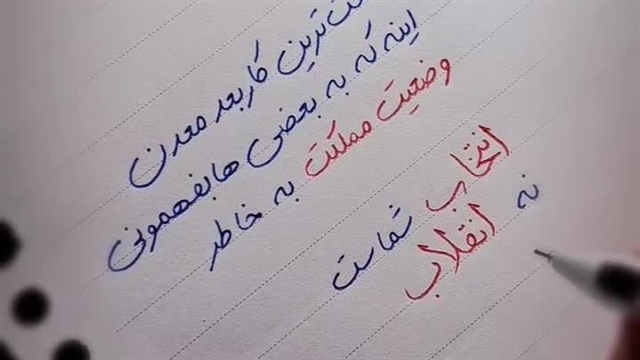 ت‌ترین کار بعد معدن
اینه که به بعضی ها بفهمونی
وضعیت مملکت به خاطر
انتخاب شماست
نه انقلاب